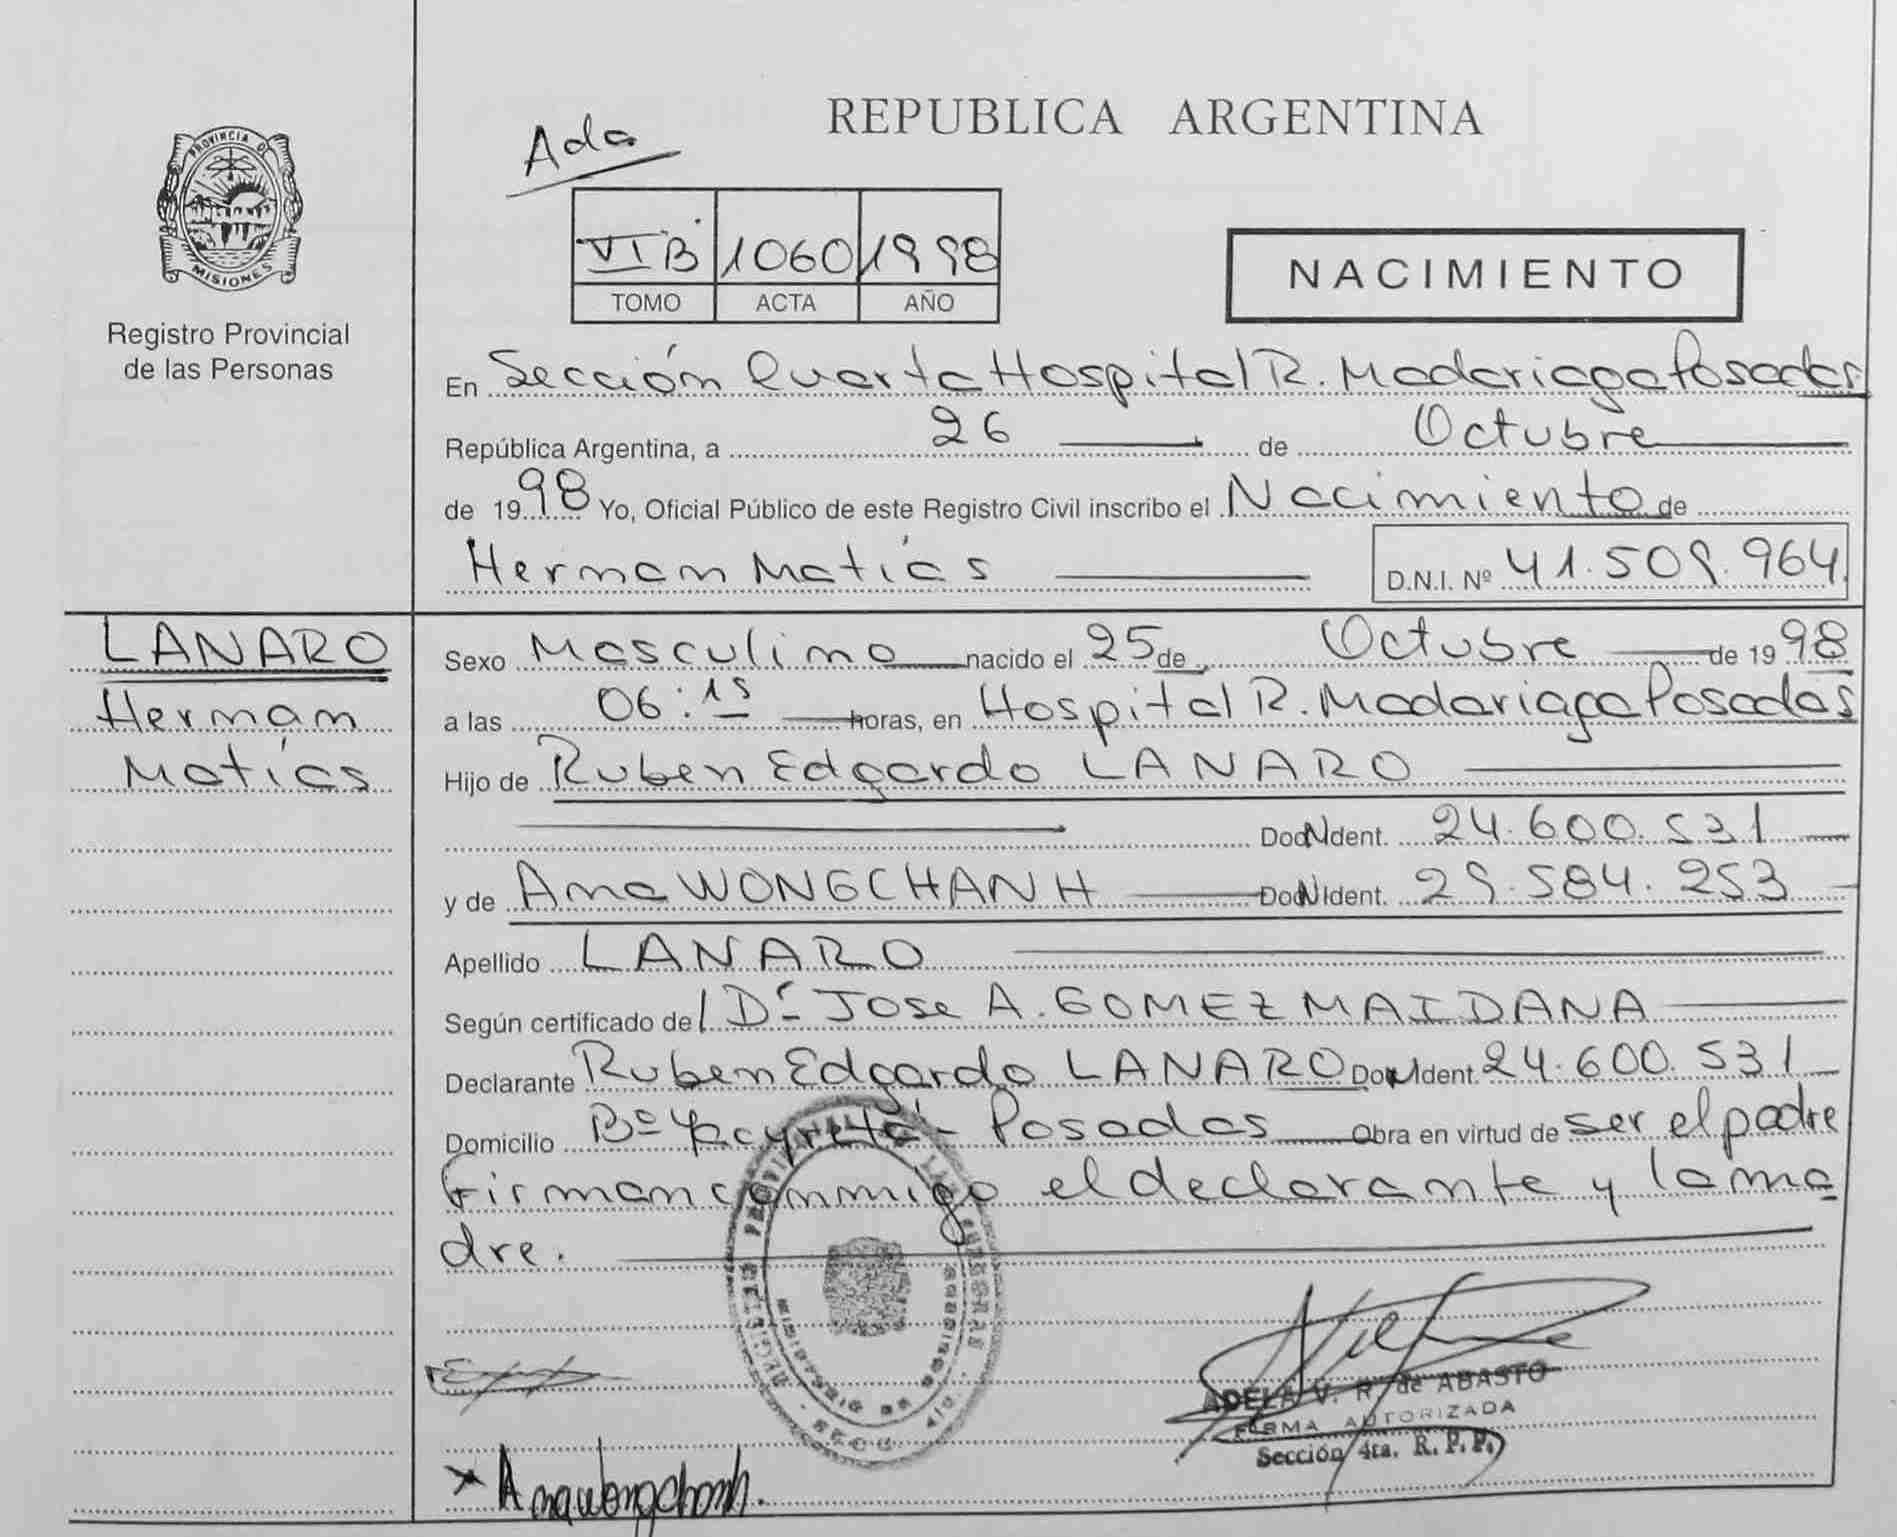 PROVINCIA D
MISIONES
Registro Provincial
de las Personas
REPUBLICA ARGENTINA
Ada
VI B 1060 1998
TOMO ACTA AÑO
NACIMIENTO
En Sección Cuarta Hospital R. Madariaga Posadas
República Argentina, a 26 de Octubre
de 1998 Yo, Oficial Público de este Registro Civil inscribo el Nacimiento de
Herman Matías D.N.I. Nº 41.509.964
LANARO
Herman
Matías
Sexo Masculino nacido el 25 de Octubre de 1998
a las 06:15 horas, en Hospital R. Madariaga Posadas
Hijo de Ruben Edgardo LANARO
Doc. Ident. 24.600.531
y de Ana WONGCHANH Doc. Ident. 29.584.253
Apellido LANARO
Según certificado del Dr. Jose A. GOMEZ MAIDANA
Declarante Ruben Edgardo LANARO Doc. Ident. 24.600.531
Domicilio Bº Yacyretá - Posadas Obra en virtud de ser el padre
Firman conmigo el declarante y la ma
dre.
ADELA V. R. de ABASTO
FIRMA AUTORIZADA
Sección 4ta. R. P. P.
x Ana wongchanh.